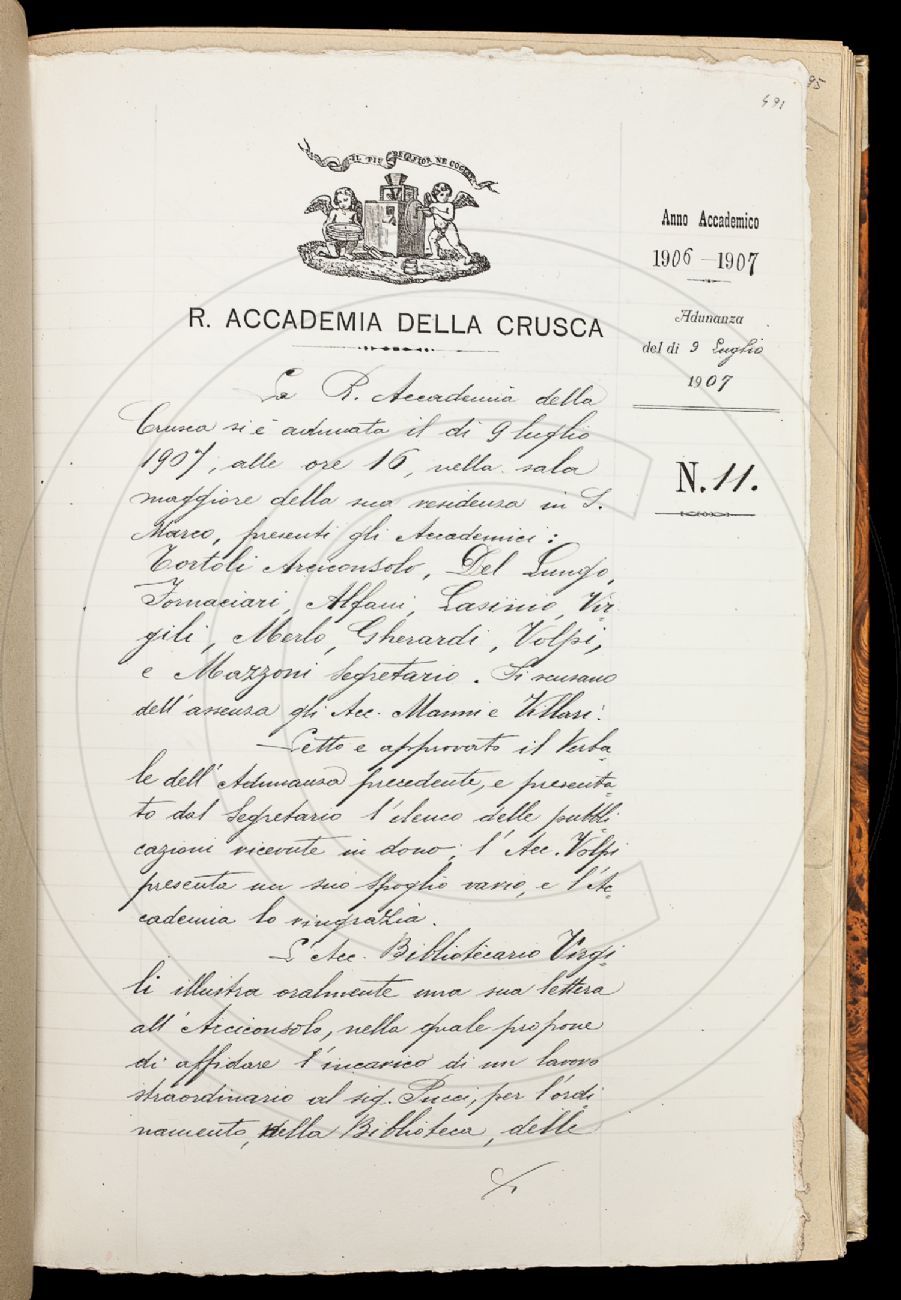 95
491
IL PIÙ BEL FIOR NE COGLIE
Anno Accademico
1906-1907
R. ACCADEMIA DELLA CRUSCA
Adunanza
del dì 9 Luglio
1907
N. 11.
La R. Accademia della
Crusca si è adunata il dì 9 luglio
1907, alle ore 16, nella sala
maggiore della sua residenza in S.
Marco, presenti gli Accademici:
Tortoli Arciconsolo, Del Lungo,
Fornaciari, Alfani, Lasinio, Vir-
gili, Merlo, Gherardi, Volpi,
e Mazzoni Segretario. Si scusano
dell'assenza gli Acc. Manni e Villari.
Letto e approvato il Verba-
le dell'Adunanza precedente, e presenta-
to dal Segretario l'elenco delle pubbli-
cazioni ricevute in dono, l'Acc. Volpi
presenta un suo spoglio vario, e l'Ac-
cademia lo ringrazia.
L'Acc. Bibliotecario Virgi-
li illustra oralmente una sua lettera
all'Arciconsolo, nella quale propone
di affidare l'incarico di un lavoro
straordinario al sig. Pucci, per l'ordi-
namento, nella Biblioteca, delle